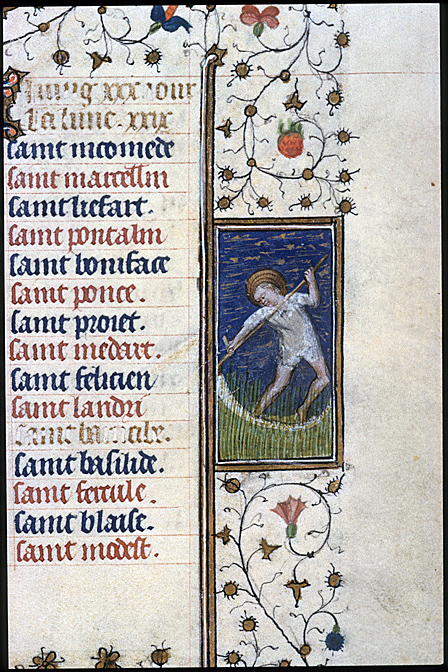 Juing xxx iour
La lune. xxix
saint nicomede
saint marcellin
saint liefart.
saint pontalin
saint boniface
saint ponce.
saint proiet.
saint medart.
saint felicien
saint landri
saint
saint basilide.
saint fercule.
saint blaise.
saint modest.